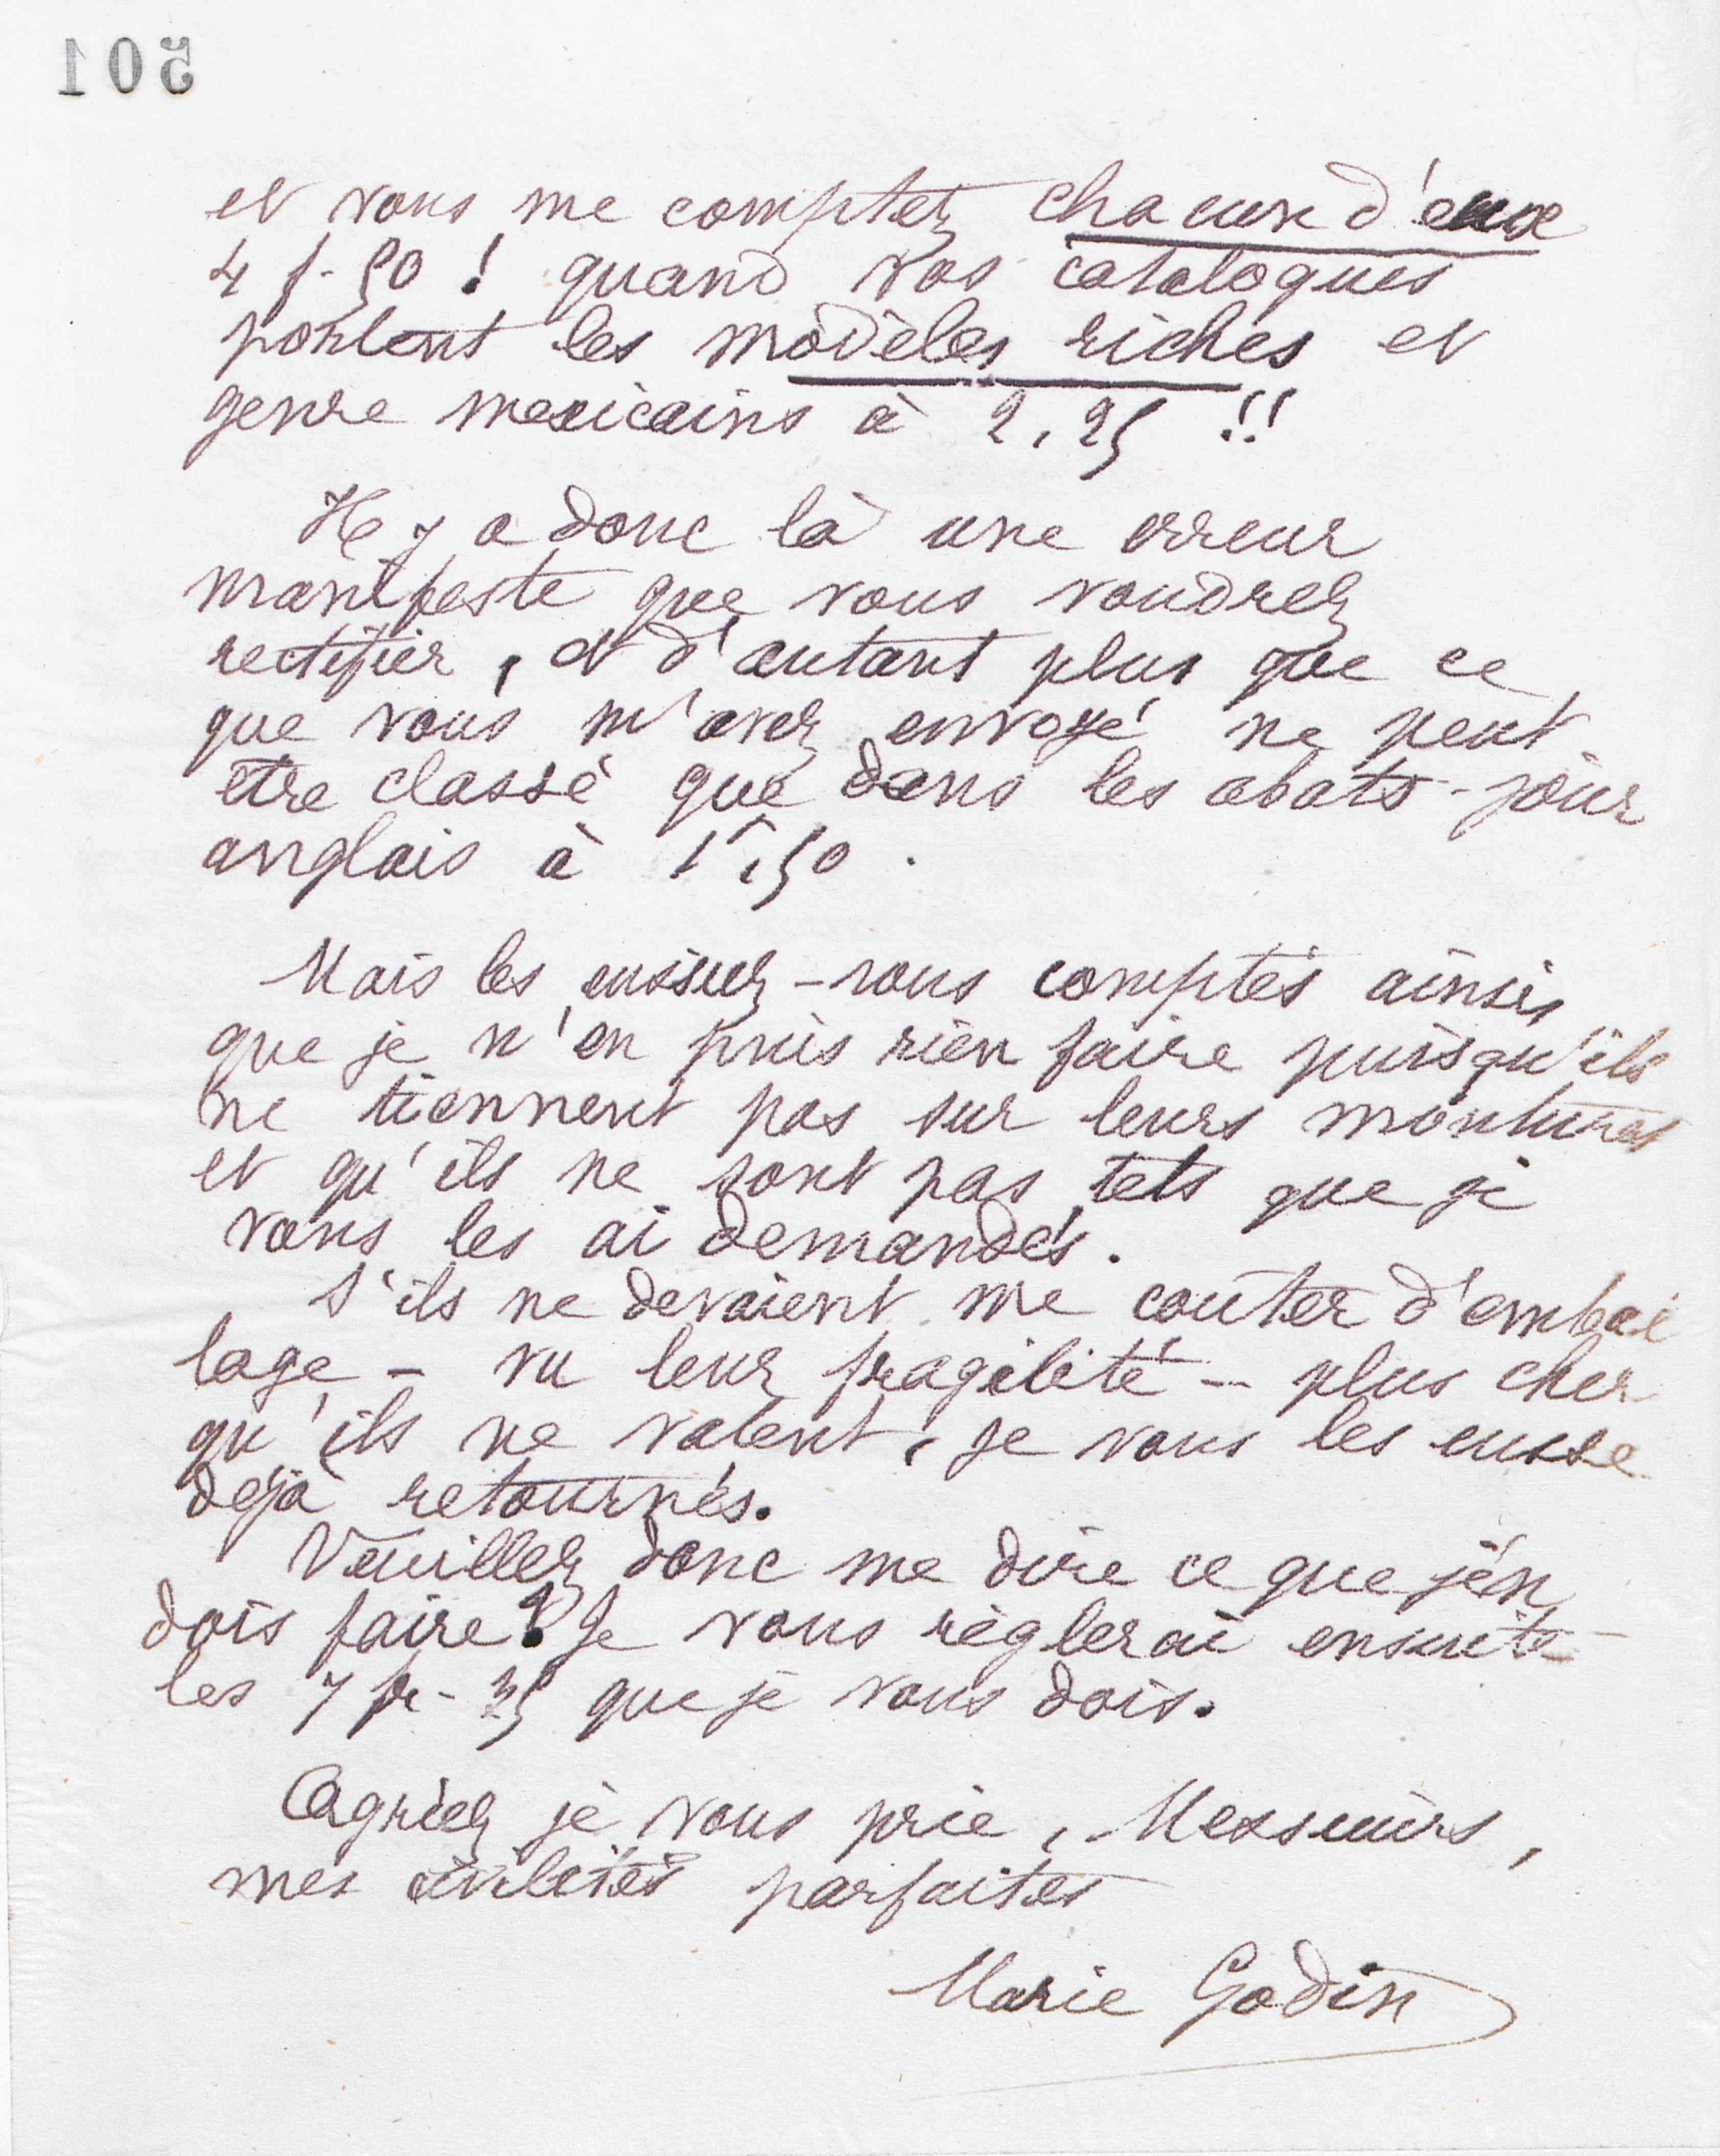 501
et vous me comptez chacun d'eux
4 f. 50 ! quand vos catalogues
portent les modèles riches et
genre mexicains à 2,25 !!
Il y a donc là une erreur
manifeste que vous voudrez
rectifier, et d'autant plus que ce
que vous m'avez envoyé ne peut
être classé que dans les abats-jour
anglais à 1f,50.
Mais les eussiez-vous comptés ainsi,
que je n'en puis rien faire puisqu'ils
ne tiennent pas sur leurs montures
et qu'ils ne sont pas tels que je
vous les ai demandés.
S'ils ne devaient me coûter d'embal
lage – vu leur fragilité – plus cher
qu'ils ne valent, je vous les eusse
déjà retournés.
Veuillez donc me dire ce que j'en
dois faire ? Je vous règlerai ensuite
les 7 fr - 35 que je vous dois.
Agréez je vous prie, Messieurs,
mes civilités parfaites
Marie Godin